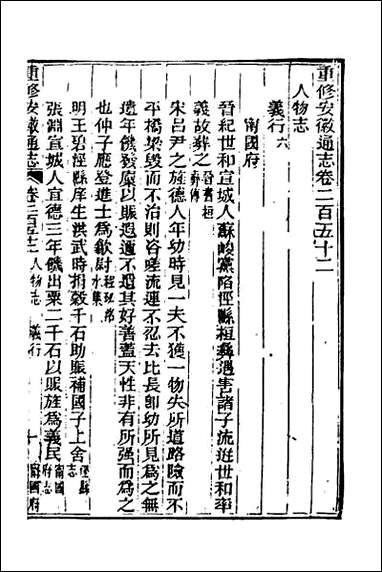 重修安徽通志卷二百五十二
人物志
義行六
甯國府
晉紀世和宣城人蘇峻黨陷涇縣桓彝遇害諸子流迸世和率
義故葬之晉書桓彝傳
宋呂尹之旌德人年幼時見一夫不獲一物失所道路險而不
平橋梁毀而不治則咨嗟流連不忍去比長卽幼所見爲之無
遺年饑發廩以賑遐邇不遺其好善蓋天性非有所强而爲之
也仲子應登進士爲歙尉程珌洺水集
明王碧涇縣庠生洪武時捐穀千石助賑補國子上舍涇縣志
張淵宣城人宣德三年饑出粟二千石以賑旌爲義民甯國府志
重修安徽通志 卷二百五十二 人物志 義行 十 甯國府